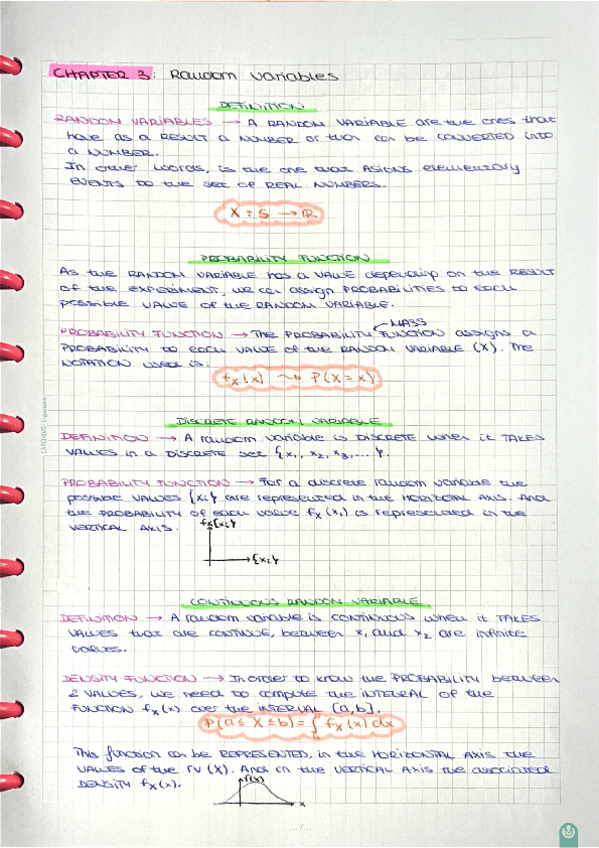 CHAPTER 3: Random Variables
DEFINITION
RANDOM VARIABLES → A RANDOM VARIABLE are the ones that
have as a RESULT a NUMBER or that can be CONVERTED into
a NUMBER.
In other words, is the one that ASIGNS elementary
EVENTS to the set of REAL NUMBERS.
X : S → ℝ
PROBABILITY FUNCTION
As the RANDOM VARIABLE has a VALUE depending on the RESULT
of the EXPERIMENT, we can assign PROBABILITIES to each
possible VALUE of the RANDOM VARIABLE.
MASS
PROBABILITY FUNCTION → The PROBABILITY FUNCTION assigns a
PROBABILITY to each VALUE of the RANDOM VARIABLE (X). The
NOTATION used is:
fx(x) ⇝ P(X = x)
DISCRETE RANDOM VARIABLE
DEFINITION → A random variable is DISCRETE when it TAKES
VALUES in a DISCRETE set {x₁, x₂, x₃, ... }.
PROBABILITY FUNCTION → For a discrete random variable the
possible VALUES {xi} are represented in the HORIZONTAL AXIS. And
the PROBABILITY of each value fx(xi) is represented in the
VERTICAL AXIS.
fx{xi}
{xi}
CONTINUOUS RANDOM VARIABLE
DEFINITION → A random variable is CONTINUOUS when it TAKES
VALUES that are CONTINUE, between x₁ and x₂ are infinite
values.
DENSITY FUNCTION → In order to know the PROBABILITY between
2 VALUES, we need to compute the INTEGRAL of the
FUNCTION fx(x) over the INTERVAL [a,b].
P(a ≤ X ≤ b) = ∫ fx(x) dx
This function can be REPRESENTED, in the HORIZONTAL AXIS the
VALUES of the rv (X). And in the VERTICAL AXIS the associated
DENSITY fx(x).
f(x)
x